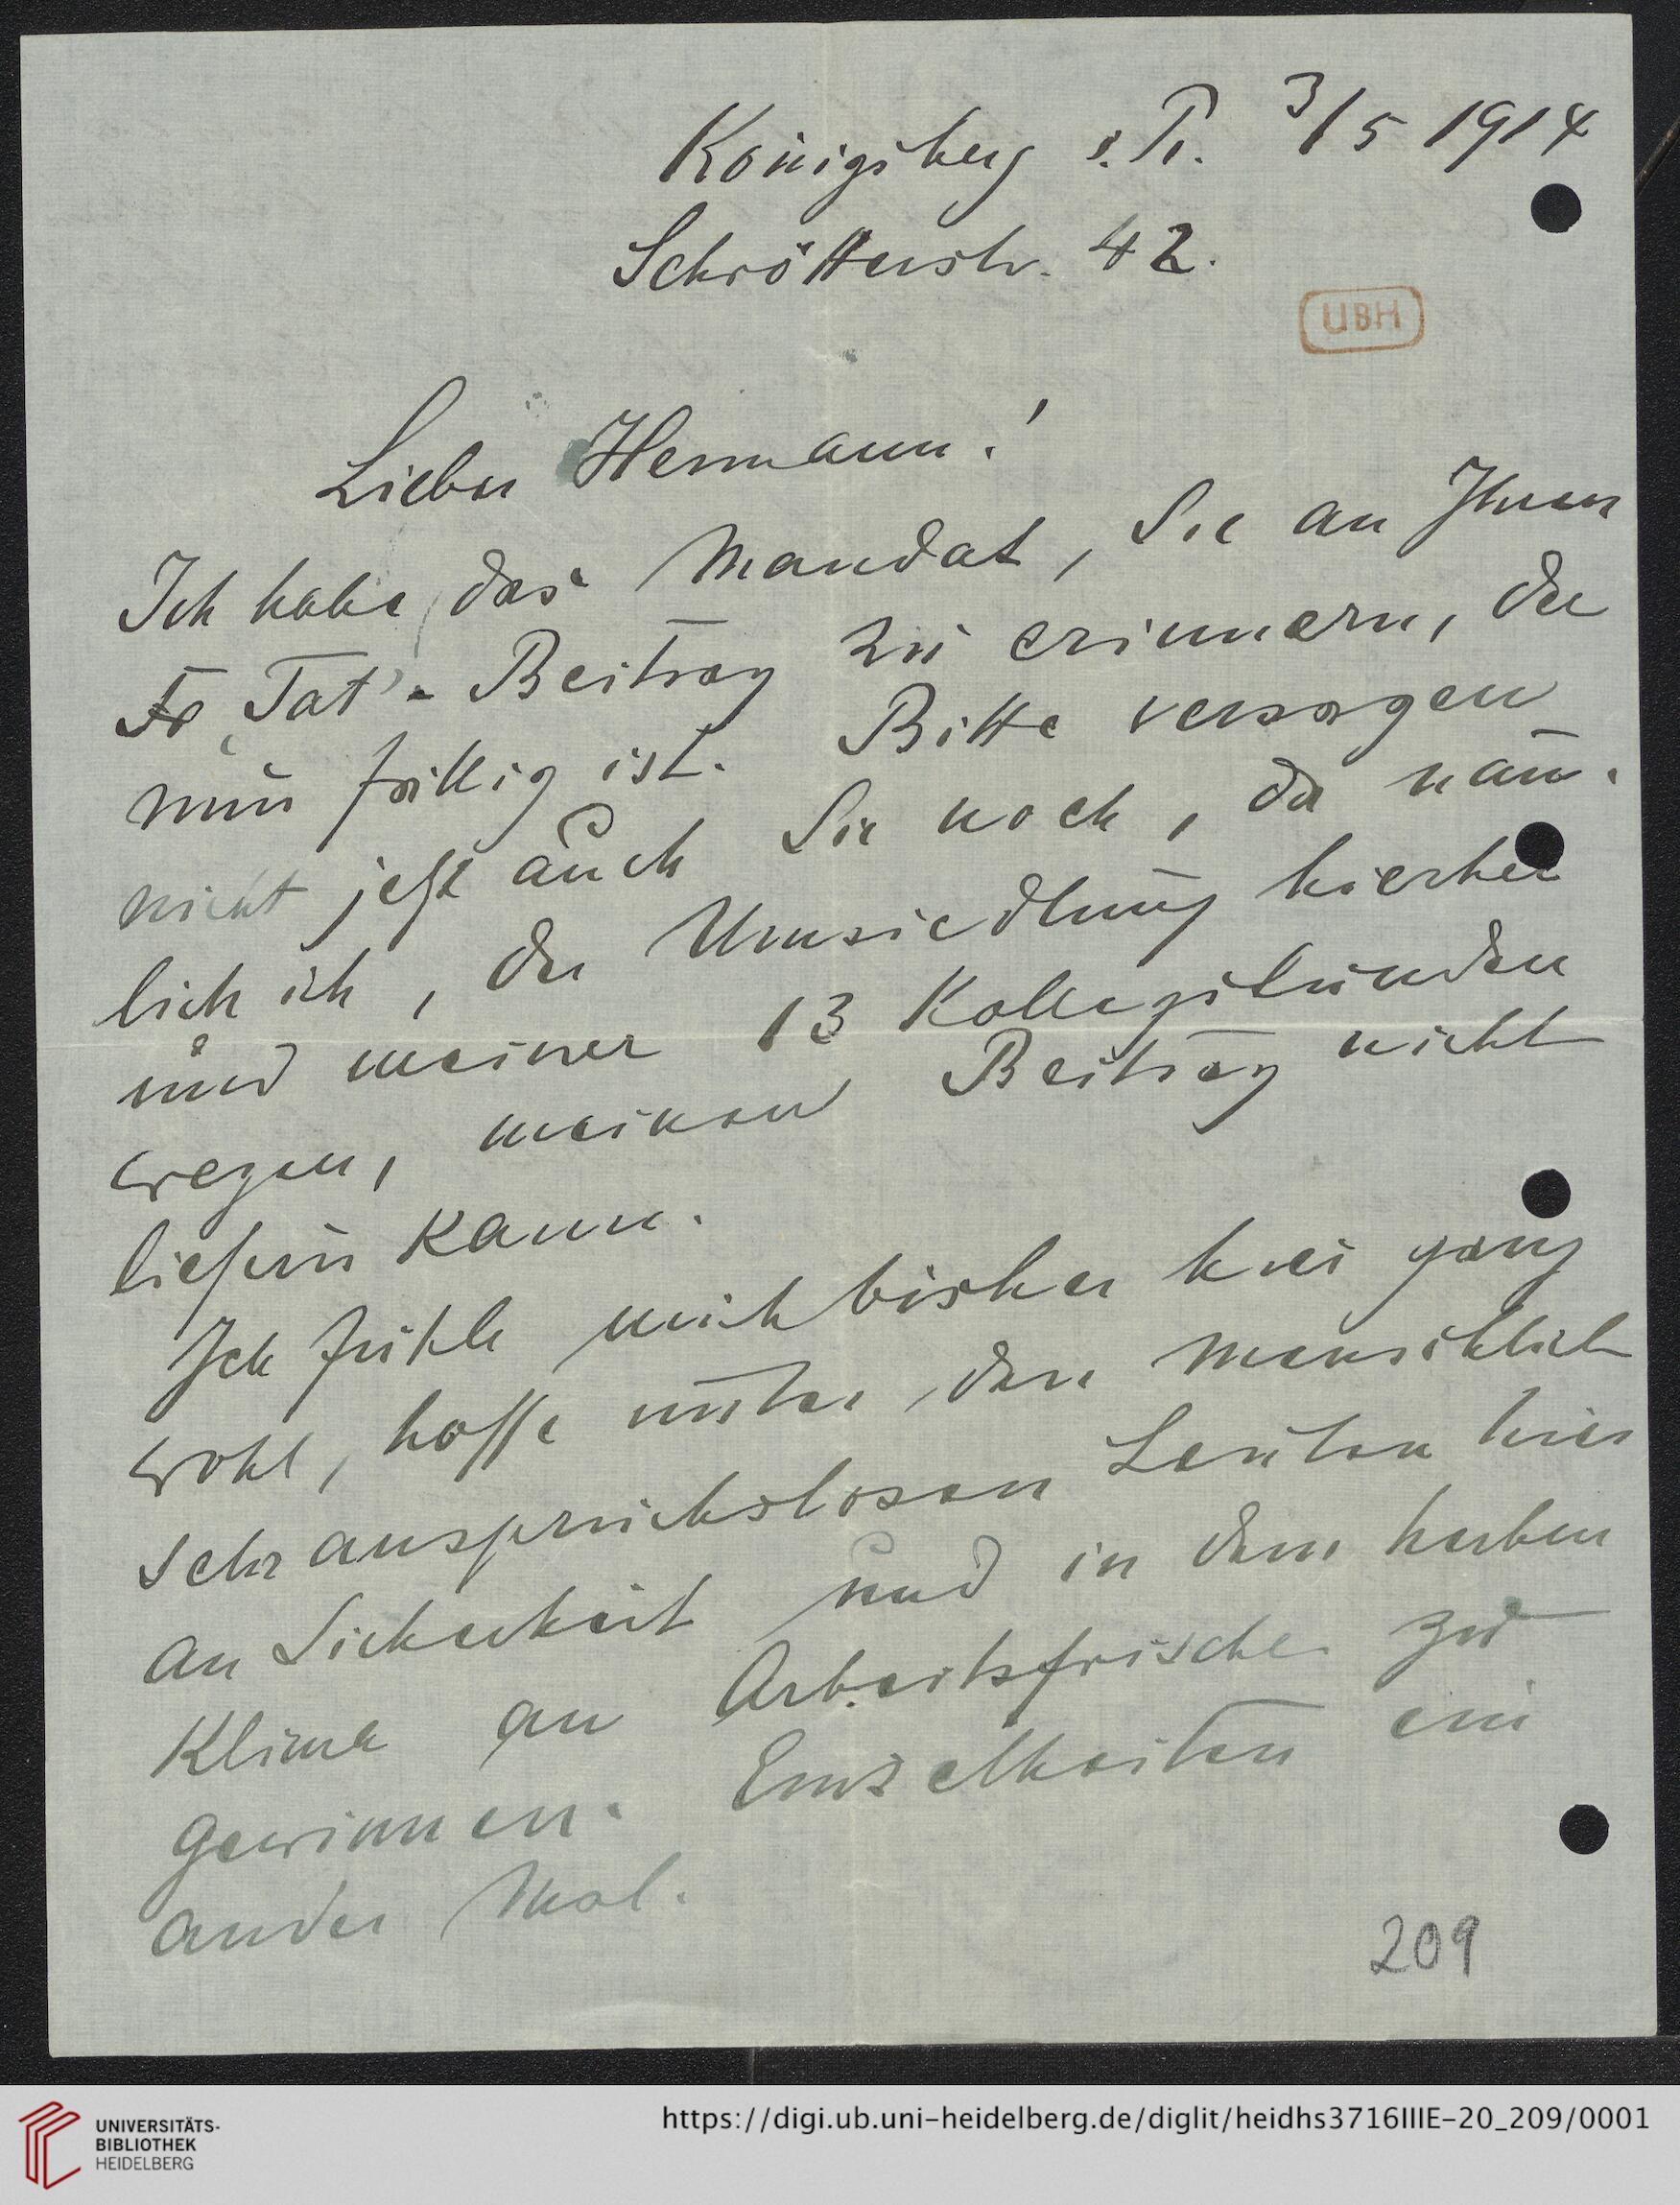 Königsberg i. Pr. 3/5 1914
Schrötterstr. 42.
UBH
Lieber Hermann!
Ich habe das Mandat, Sie an Ihren
„Tat“-Beitrag zu erinnern, der
nun fällig ist. Bitte versagen
nicht jetzt auch Sie noch, da näm-
lich ich, der Umsiedlung hierher
und meiner 13 Kollegstunden
wegen, meinen Beitrag nicht
liefern kann.
Ich fühle mich bisher hier ganz
wohl, hoffe unter den menschlich
sehr anspruchslosen Leuten hier
an Sicherheit und in dem herben
Klima an Arbeitsfrische zu
gewinnen. Einzelheiten ein
ander Mal.
209
UNIVERSITÄTS-
BIBLIOTHEK
HEIDELBERG
https://digi.ub.uni-heidelberg.de/diglit/heidhs3716IIIE-20_209/0001